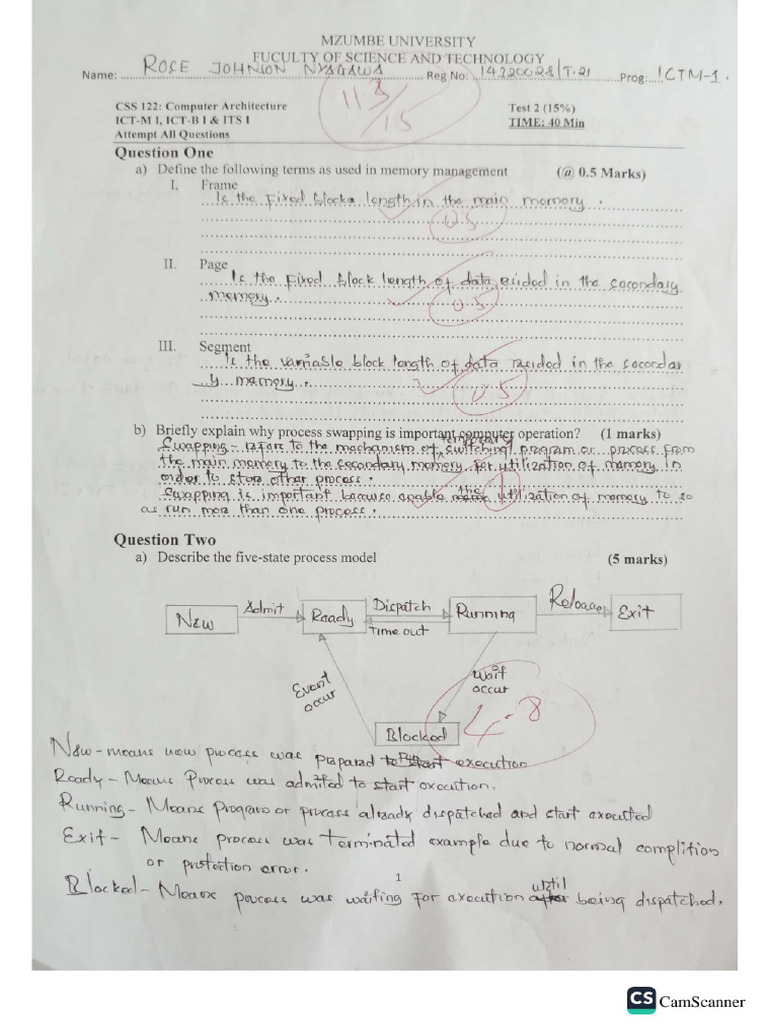 MZUMBE UNIVERSITY
FUCULTY OF SCIENCE AND TECHNOLOGY
Name: ROSE JOHNSON NYAGAWA Reg No: 14220028/T.21 Prog: ICTM-1.
CSS 122: Computer Architecture Test 2 (15%)
ICT-M I, ICT-B I & ITS I TIME: 40 Min
Attempt All Questions
11.3/15
Question One
a) Define the following terms as used in memory management (@ 0.5 Marks)
I. Frame
Is the Fixed blocka length in the main memory.
0.5
II. Page
Is the Fixed block length of data resided in the secondary
memory.
0.5
III. Segment
Is the variable block length of data resided in the secondar
y memory.
0.5
b) Briefly explain why process swapping is important computer operation? (1 marks)
Swapping - refers to the mechanism of temporary switching program or process from
the main memory to the secondary memory for utilization of memory in
order to store other process.
Swapping is important because enable the utilization of memory to so
as run more than one process.
1
Question Two
a) Describe the five-state process model (5 marks)
New Admit Ready Dispatch Running Release Exit
Time out
Event occur
Wait occur
Blocked
4.8
New - means new process was prepared for execution
Ready - Means Process was admitted to start execution.
Running - Means program or process already dispatched and start executed
Exit - Means process was terminated example due to normal complition
or protection error.
1
Blocked - Means process was waiting for execution until being dispatched.
CS CamScanner